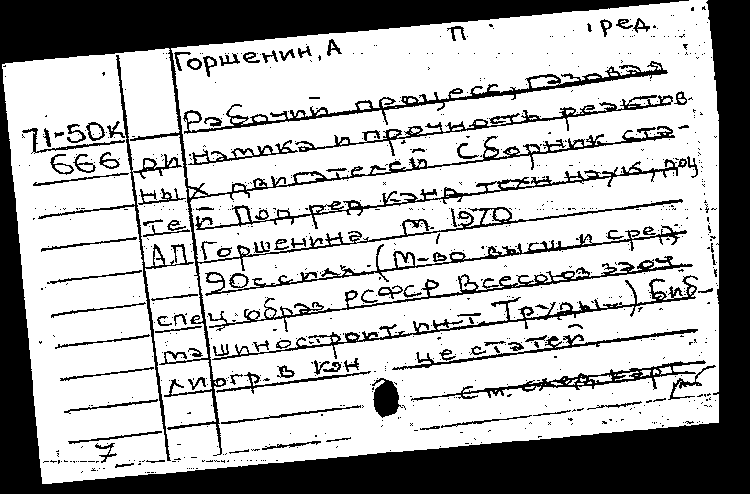 Горшенин, А П ред.
Рабочий процесс, газовая
71-50К
666 динамика и прочность реактив
ных двигателей Сборник ста-
тей Под ред. канд. техн наук, доц
А П Горшенина М. 1970.
90 с. с илл. (М-во высш и сред
спец. образ РСФСР Всесоюз заоч
машиностроит. ин-т. Труды...) Биб-
лиогр. в конце статей.
См. след. карт
7